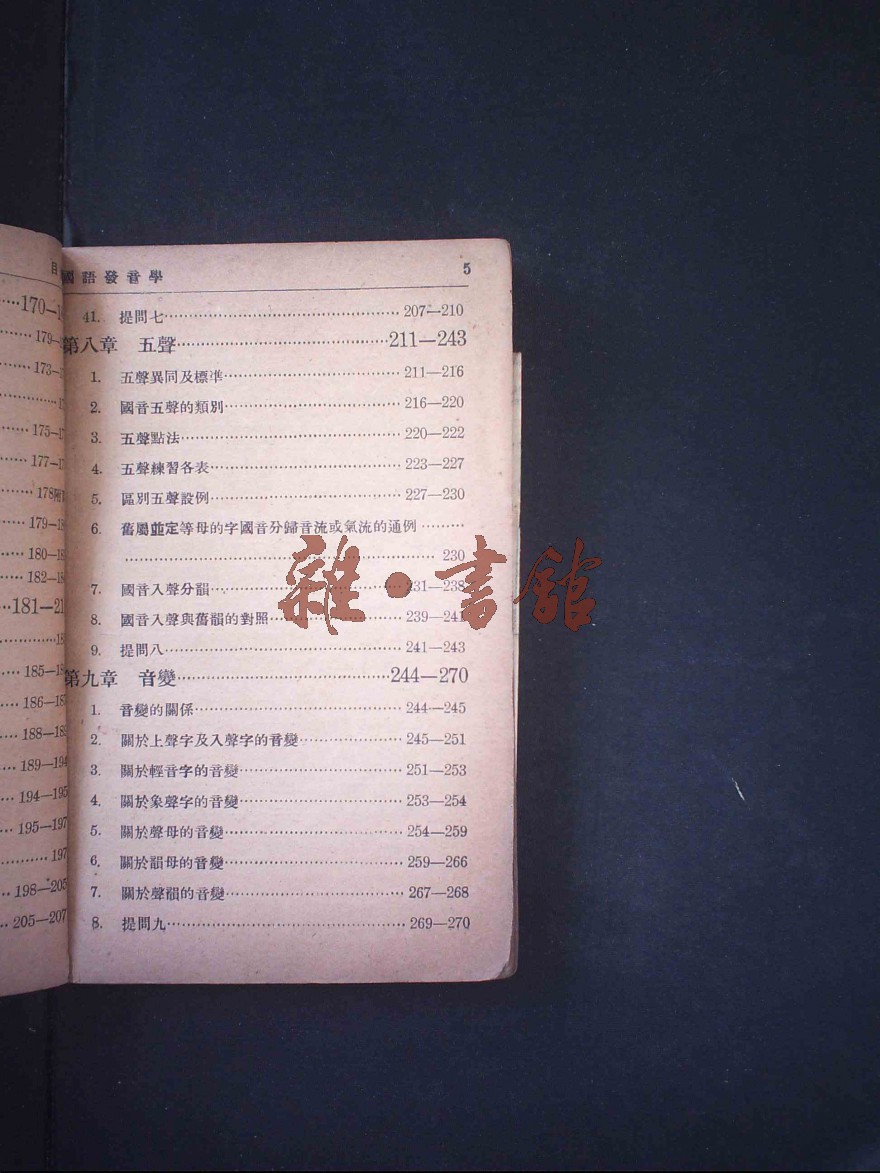 目
170—
179—
173—
175—17
177—17
178附
179—18
180—18
182—18
181—21
18
185—18
186—187
188—189
189—194
194—195
195—197
197
198—205
205—207
國語發音學 5
41. 提問七 207—210
第八章 五聲 211—243
1. 五聲異同及標準 211—216
2. 國音五聲的類別 216—220
3. 五聲點法 220—222
4. 五聲練習各表 223—227
5. 區別五聲設例 227—230
6. 舊屬並定等母的字國音分歸音流或氣流的通例
230
7. 國音入聲分韻 231—238
8. 國音入聲與舊韻的對照 239—241
9. 提問八 241—243
第九章 音變 244—270
1. 音變的關係 244—245
2. 關於上聲字及入聲字的音變 245—251
3. 關於輕音字的音變 251—253
4. 關於象聲字的音變 253—254
5. 關於聲母的音變 254—259
6. 關於韻母的音變 259—266
7. 關於聲韻的音變 267—268
8. 提問九 269—270
雜·書館